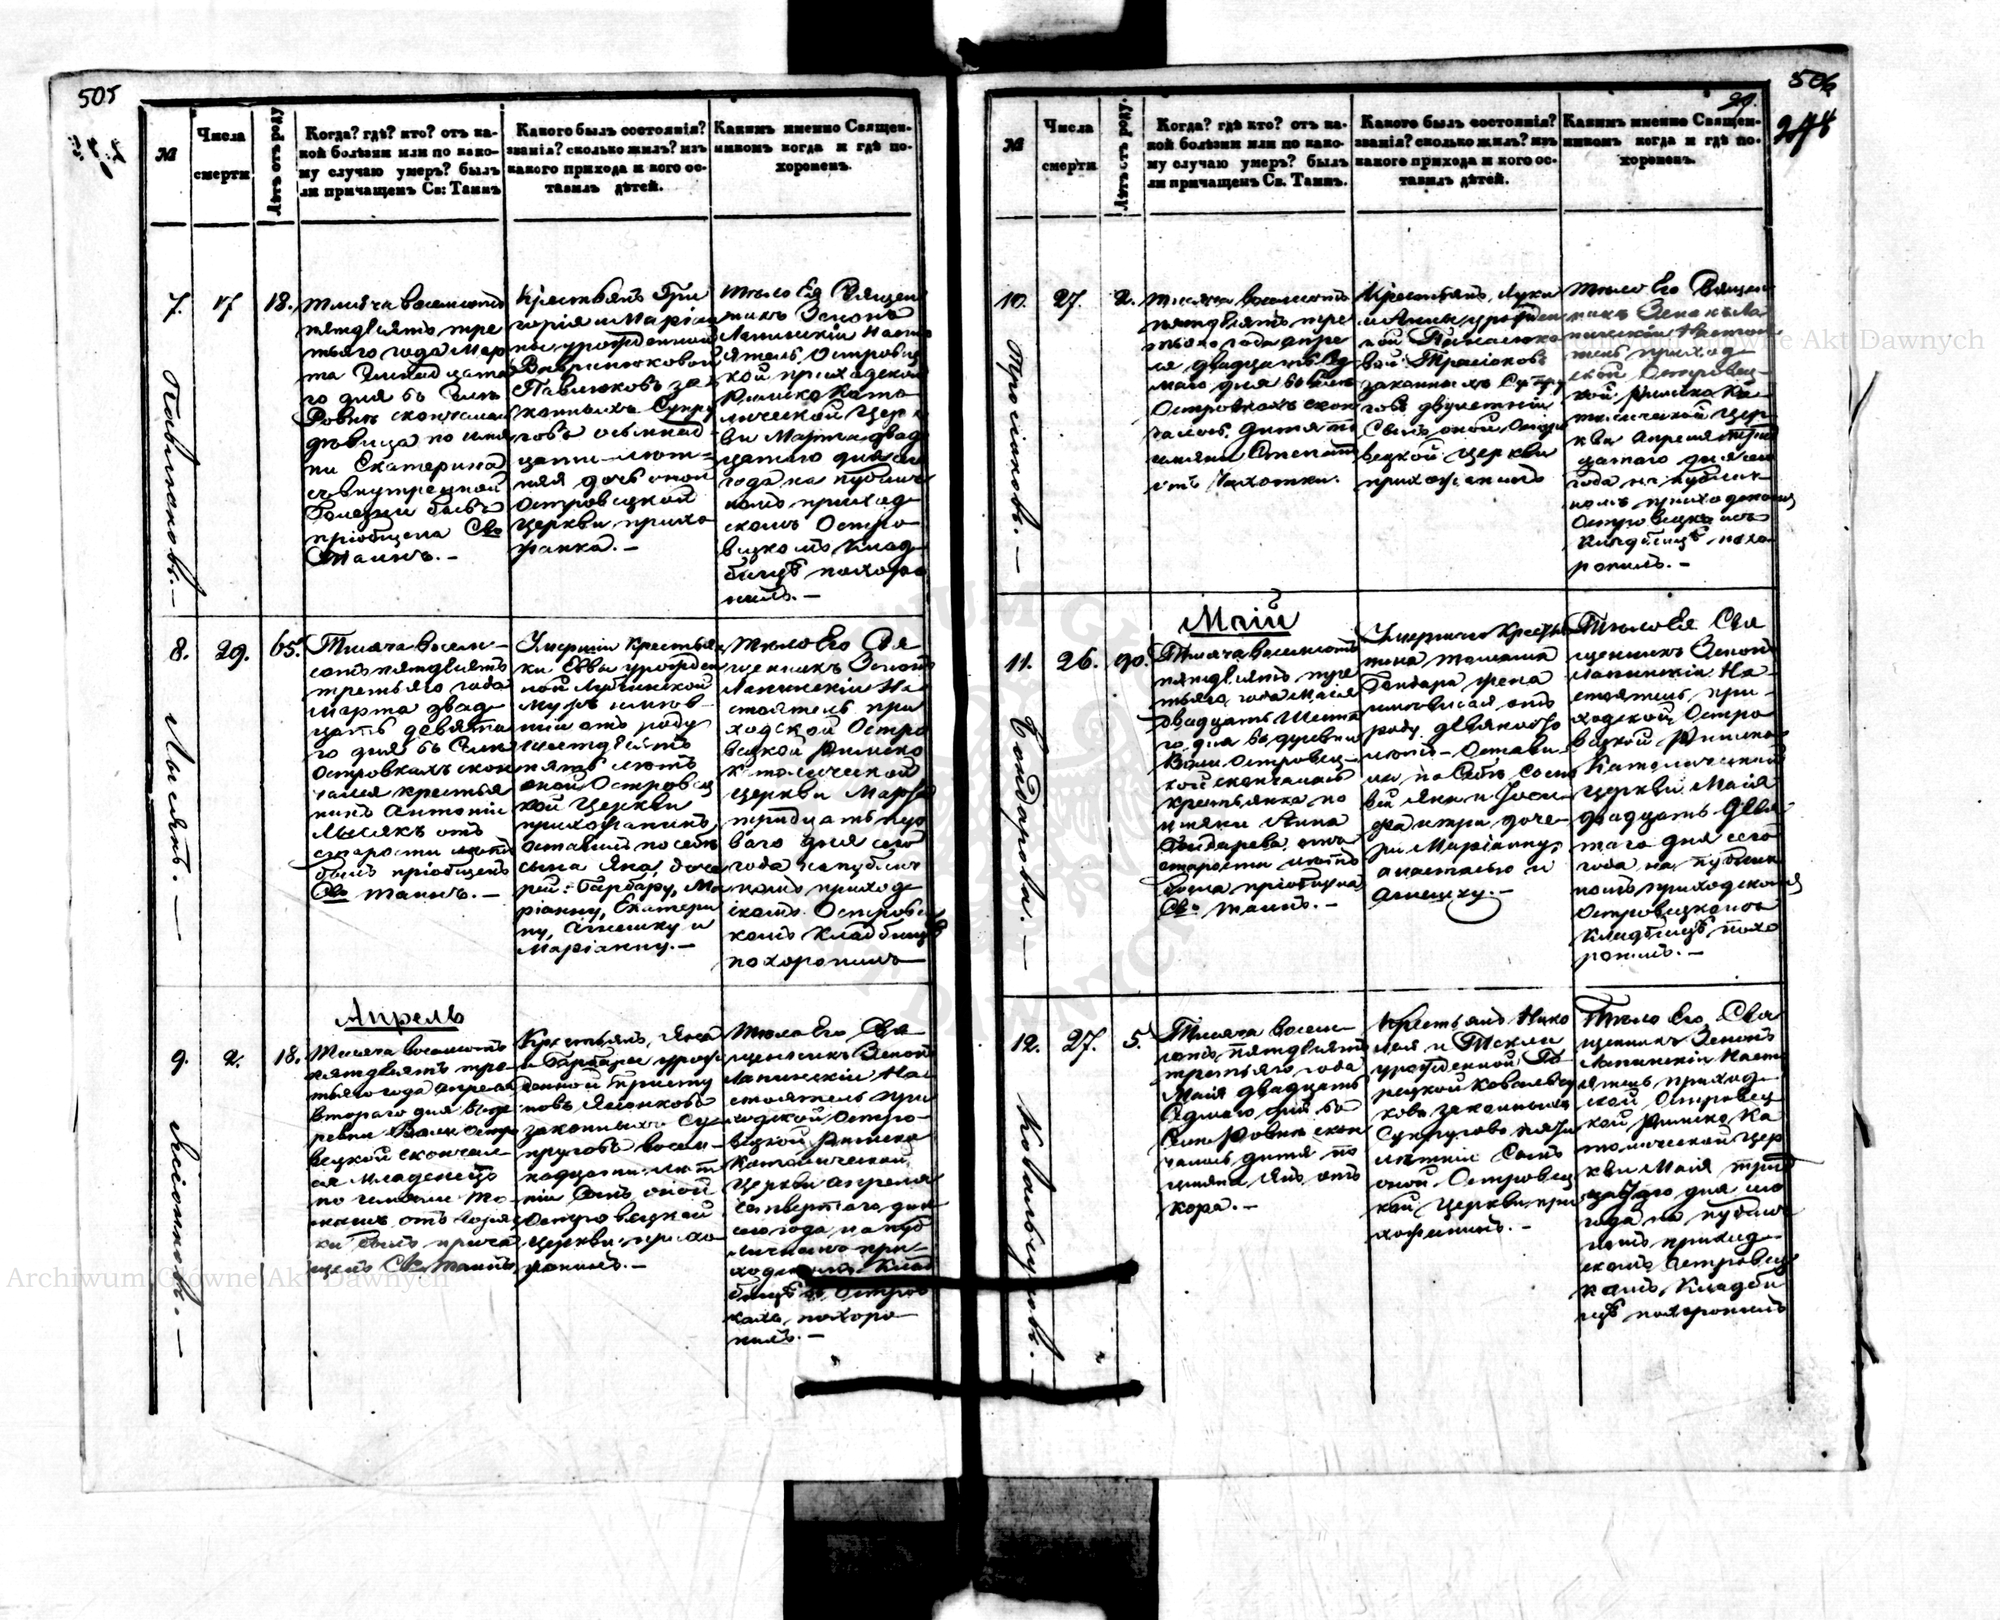 505
№
Числа
смерти
Лѣтъ отъ роду
Когда? гдѣ? кто? отъ ка-
кой болѣзни или по како-
му случаю умеръ? былъ
ли причащенъ Св: Таинъ
Какого былъ состоянія?
званія? сколько жилъ? изъ
какого прихода и кого ос-
тавилъ дѣтей.
Какимъ именно Священ-
никомъ когда и гдѣ по-
хороненъ.
7.
17
18.
Павлюковъ. —
Тысяча восемьсотъ
пятдѣсятъ тре
тьяго года Мар
та
го дня въ
скончалась
дѣвица по име
ни Екатерина
съ внутренной
болезни бывъ
пріобщена Св.
Таинъ. —
Крестьянъ Гри
горія и Маріан
ны урожденной
Вавринюковой
Павлюковъ за
конныхъ Супру
говъ осьмнад
цати-лѣт=
няя дочь оной
Островецкой
церкви прихо
жанка. —
Тѣло Ея Священ
никъ Зенонъ
Лапинскій Насто
ятель Островец
кой приходской
Римско Като
лической Цер
кви Марта двад
цатаго дня сего
года на публич
номъ приход
скомъ Остро
вецкомъ клад
бищѣ похоро
нилъ. —
8.
29.
65.
Лысякъ. —
Тысяча восемь-
сотъ пятдѣсятъ
третьяго года
Марта двад
цать девята
го дня въ Селѣ
Островкахъ скон
чался крестья
нинъ Антоній
Лысякъ отъ
старости лѣтъ
былъ пріобщенъ
Св. Таинъ. —
Умершій Крестьян
ки Еввы урожден
ной
мужъ имѣв-
шій отъ роду
шестдѣсятъ
пять лѣтъ
оной Островец
кой Церкви
прихожанинъ
оставилъ по себѣ
сына Яна, доче
рей: Барбару, Ма
ріанну, Екатери
ну, Агнешку и
Маріанну. —
Тѣло Его Свя
щенникъ Зенонъ
Лапинскій На
стоятель при
ходской Остро
вецкой Римско
К толической
Церкви Марта
тридцать пер
ваго дня сего
года на публич
номъ приход
скомъ Островец
комъ Кладбищѣ
похоронилъ
Апрель
9.
2.
18.
Ясюнковъ. —
Тысяча восемьсотъ
пятдѣсятъ тре
тьяго года Апреля
втораго дня въ де
ревни Воли Остро
вецкой скончал
ся младенецъ
по имени То-
машъ отъ горяч
ки былъ прича
щенъ Св. Таинъ
Крестьянъ, Яна
и Барбары урож
денной
Ясюнковъ
законныхъ Су
пруговъ восем-
надцати-лѣт
ній Сынъ оной
Островецкой
Церкви прихо
жанинъ. —
Тѣло Его Свя
щенникъ Зенонъ
Лапинскій На
стоятель при
ходской Остро-
вецкой Римско
Католической
Церкви Апреля
четвертаго дня
сего года на пуб
личномъ при-
ходскомъ Клад
бищѣ въ Остров
кахъ похоро-
нилъ. —
506
29.
248
№
Числа
смерти
Лѣтъ отъ роду.
Когда? гдѣ кто? отъ ка-
кой болѣзни или по како-
му случаю умеръ? былъ
ли причащенъ Св. Таинъ.
Какого былъ состоянія?
званія? сколько жилъ? изъ
какого прихода и кого ос-
тавилъ дѣтей.
Какимъ именно Священ-
никомъ когда и гдѣ по-
хороненъ.
10.
27.
2.
Трасюковъ. —
Тысяча восемьсотъ
пятдѣсятъ тре
тьяго года Апре
ля двадцать Сед
маго дня въ Селѣ
Островкахъ скон
чалось дитя по
имяни
отъ Чахотки.
Крестьянъ, Луки
и Анны урожден
ной
вой Трасюковъ
законныхъ Супру
говъ двулетній
Сынъ оной Остро
вецкой Церкви
прихожанинъ
Тѣло Его Священ
никъ Зенонъ Ла
пинскій Настоя
тель приход
ской Островец-
кой Римско Ка
толической Цер
кви Апреля трид
цатаго дня сего
года на публич
номъ приходскомъ
Островецкомъ
кладбищѣ похо
ронилъ. —
Маій
11.
26.
90.
Бондарова. —
Тысяча восемьсотъ
пятдѣсятъ тре
тьяго года Маія
двадцать Шеста
го дня въ деревни
Воли Островец-
кой скончалась
крестьянка по
имяни Анна
Бондарева отъ
старости лѣтъ
была пріобщена
Св. Таинъ. —
Умершая Кресть
янина Томаша
Бондара жена
имѣвшая отъ
роду девяносто
лѣтъ - Остави-
ла по Себѣ Сыно
вей Яна и Іоси-
фа и три доче
ри Маріанну,
Анастасію и
Агнешку. —
Тѣло Ея Свя
щенникъ Зенонъ
Лапинскій На-
стоятель при-
ходской Остро
вецкой Римско
Католической
Церкви Маія
двадцать девя
таго дня сего
года на публич
номъ приходскомъ
Островецкомъ
Кладбищѣ похо
ронилъ. —
12.
27.
5.
Ковальчуковъ. —
Тысяча восемь-
сотъ пятдѣсятъ
третьяго года
Маія двадцать
Седмаго дня въ
скон
чалось дитя по
имяни Янъ отъ
кора. —
Крестьянъ Нико
лая и Теклы
урожденной Го-
рецкой Ковальчу
ковъ законныхъ
Супруговъ пяти
лѣтній Сынъ
оной Островец
кой Церкви при
хожанинъ. —
Тѣло Его Свя
щенникъ Зенонъ
Лапинскій Насто
ятель приход-
ской Островец
кой Римско Ка
толической Цер
кви Маія трид
цатаго дня сего
года на публич
номъ приход-
скомъ Островец
комъ Кладби
щѣ похоронилъ
Archiwum Główne Akt Dawnych